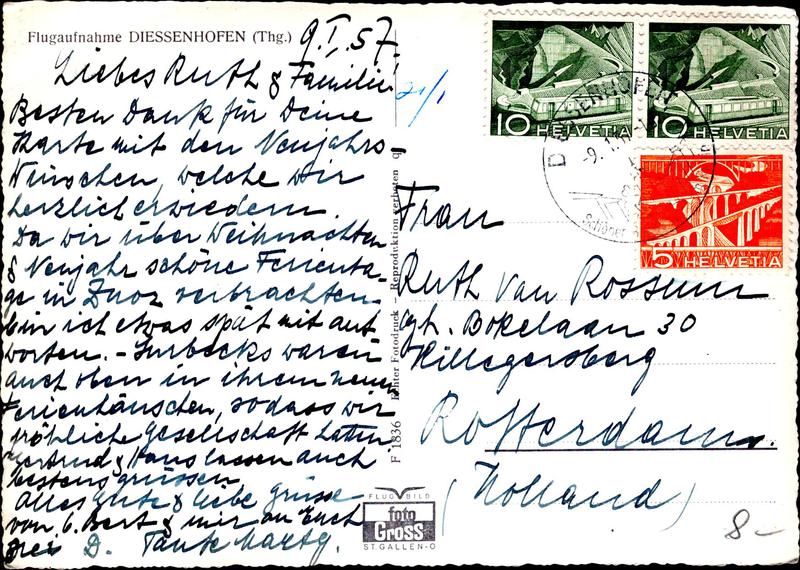 Flugaufnahme DIESSENHOFEN (Thg.)
9.I.57.
Liebes Ruth & Familie!
Besten Dank für Deine
Karte mit den Neujahrs-
Wünschen, welche wir
herzlich erwiedern.
Da wir über Weihnachten
& Neujahr schöne Ferienta-
ge in Zuoz verbrachten
bin ich etwas spät mit ant
worten. – Surbecks waren
auch oben in ihrem neuen
Ferienhäuschen, sodass wir
fröhliche Gesellschaft hatten
Gertrud & Hans lassen auch
bestens grüssen
Alles Gute & liebe Grüsse
von & mir an Euch
drei D. Tante
21/1
F 1836 Echter Fotodruck – Reproduktion verboten
FLUGBILD
foto
GROSS
ST.GALLEN-O
10 HELVETIA
10 HELVETIA
5 HELVETIA
DIESSENHOFEN
-9.1.
Frau
Ruth van Rossum
Bokelaan 30
Hillegersberg
Rotterdam.
(Holland)
8-